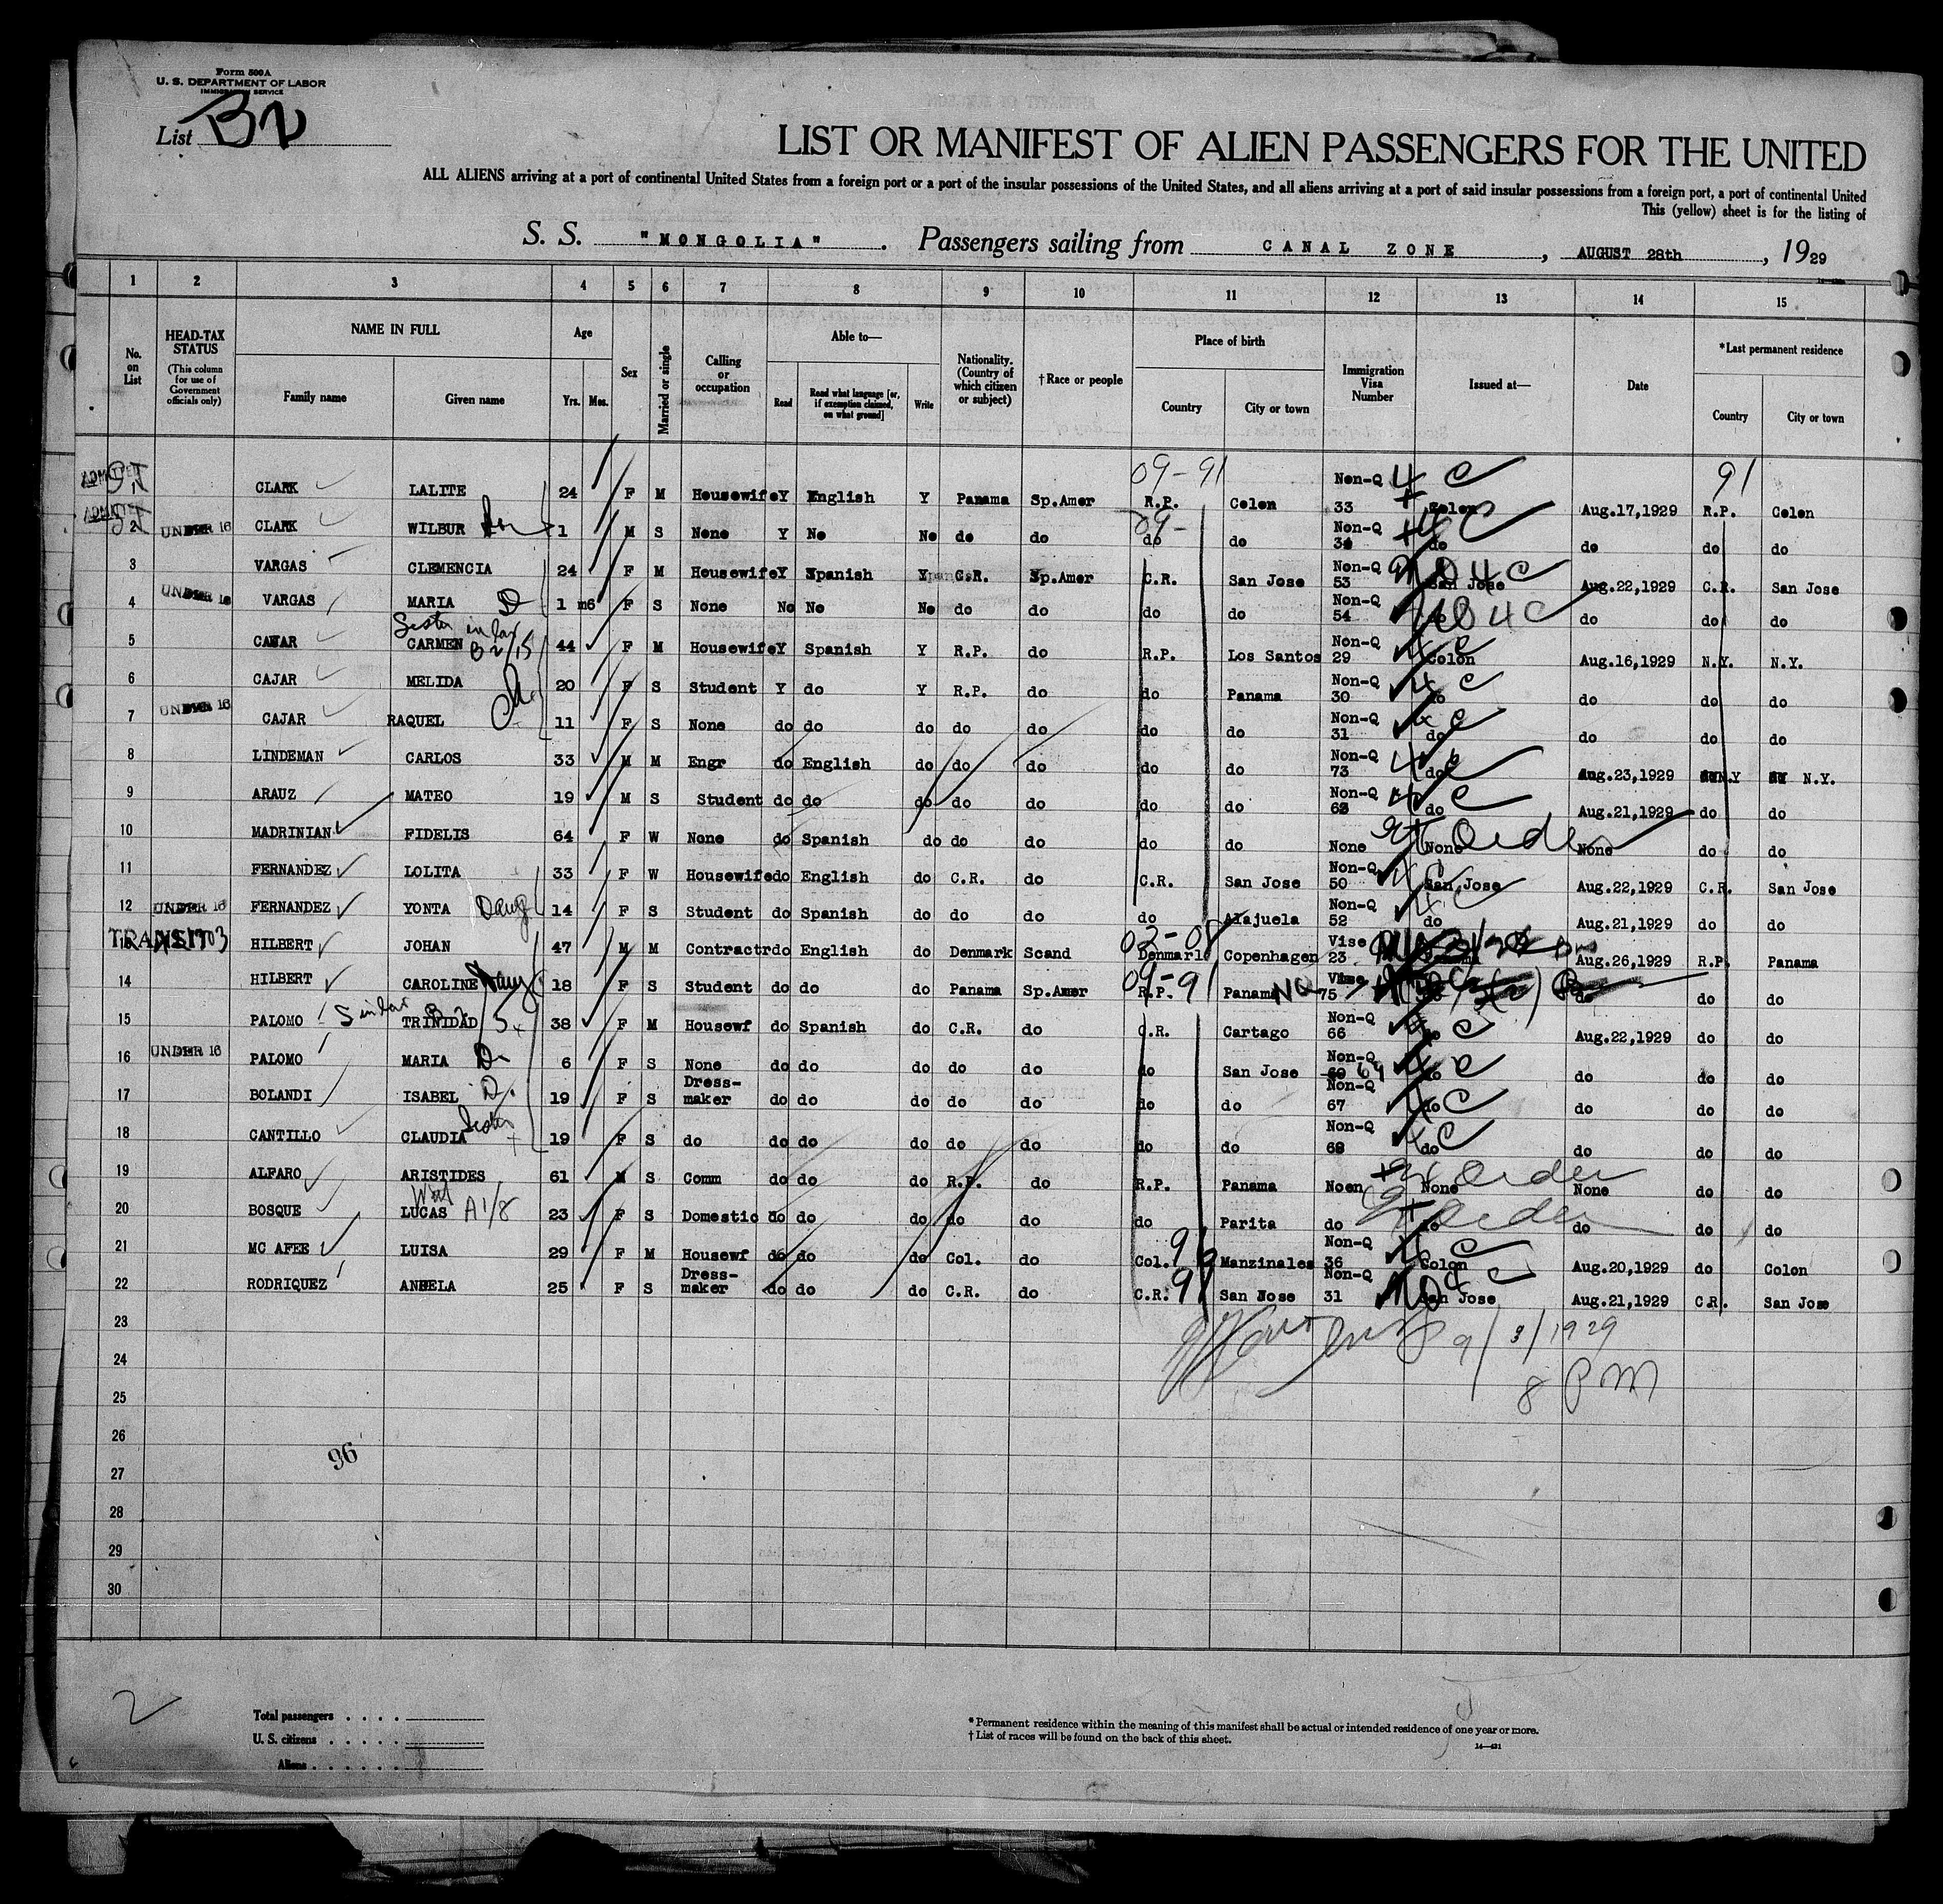 Form 500 A
U. S. DEPARTMENT OF LABOR
IMMIGRATION SERVICE
List B2
LIST OR MANIFEST OF ALIEN PASSENGERS FOR THE UNITED
ALL ALIENS arriving at a port of continental United States from a foreign port or a port of the insular possessions of the United States, and all aliens arriving at a port of said insular possessions from a foreign port, a port of continental United
This (yellow) sheet is for the listing of
S. S. "MONGOLIA". Passengers sailing from CANAL ZONE, AUGUST 28th, 1929
1 2 3 4 5 6 7 8 9 10 11 12 13 14 15
No. on List
HEAD-TAX STATUS (This column for use of Government officials only)
NAME IN FULL
Family name Given name
Age
Yrs. Mos.
Sex
Married or single
Calling or occupation
Able to—
Read Read what language [or, if exemption claimed, on what ground] Write
Nationality. (Country of which citizen or subject)
†Race or people
Place of birth
Country City or town
Immigration Visa Number
Issued at—
Date
*Last permanent residence
Country City or town
09-91 91
ADMITTED CLARK LALITE 24 F M Housewife Y English Y Panama Sp.Amer R.P. Colon Non-Q 33 4 C Colon Aug.17,1929 R.P. Colon
ADMITTED 2 UNDER 16 CLARK WILBUR 1 M S None Y No No do do 09- do do Non-Q 34 4 C do do do do
3 VARGAS CLEMENCIA 24 F M Housewife Y Spanish Y C.R. Sp.Amer C.R. San Jose Non-Q 53 4 C San Jose Aug.22,1929 C.R. San Jose
4 UNDER 16 VARGAS MARIA D 1 m6 F S None No No No do do do do Non-Q 54 4 C do do do
Sister in law B2/15
5 CAJAR CARMEN 44 F M Housewife Y Spanish Y R.P. do R.P. Los Santos Non-Q 29 4 C Colon Aug.16,1929 N.Y. N.Y.
6 CAJAR MELIDA 20 F S Student Y do Y R.P. do do Panama Non-Q 30 4 C do do do do
7 UNDER 16 CAJAR RAQUEL 11 F S None do do do do do do do Non-Q 31 4 C do do do do
8 LINDEMAN CARLOS 33 M M Engr do English do do do do do Non-Q 73 4 do Aug.23,1929 N.Y N.Y.
9 ARAUZ MATEO 19 M S Student do do do do do do do Non-Q 4 C do Aug.21,1929 do do
10 MADRINIAN FIDELIS 64 F W None do Spanish do do do do do None Order None None do do
11 FERNANDEZ LOLITA 33 F W Housewife do English do C.R. do C.R. San Jose Non-Q 50 4 C San Jose Aug.22,1929 C.R. San Jose
12 UNDER 16 FERNANDEZ YONTA Daug 14 F S Student do Spanish do do do do Alajuela Non-Q 52 4 C do Aug.21,1929 do do
TRANSIT HILBERT JOHAN 47 M M Contractr do English do Denmark Scand 02-08 Denmark Copenhagen Vise 23 Aug.26,1929 R.P. Panama
14 HILBERT CAROLINE Daug 18 F S Student do do do Panama Sp.Amer 09-91 R.P. Panama NQ Vise 75 do do
15 PALOMO TRINIDAD 38 F M Housewf do Spanish do C.R. do C.R. Cartago Non-Q 66 4 C do Aug.22,1929 do do
16 UNDER 16 PALOMO MARIA D 6 F S None do do do do do do San Jose Non-Q 69 4 C do do do do
17 BOLANDI ISABEL D. 19 F S Dress-maker do do do do do do do Non-Q 67 4 C do do do do
18 CANTILLO CLAUDIA Sister 19 F S do do do do do do do do Non-Q 68 4 C do do do do
19 ALFARO ARISTIDES 61 M S Comm do do do R.P. do R.P. Panama Noen Order None None do do
20 BOSQUE LUCAS A1/8 23 F S Domestic do do do do do do Parita do Order do do do do
21 MC AFEE LUISA 29 F M Housewf do do do Col. do Col. 96 Manzinales Non-Q 36 4 C Colon Aug.20,1929 do Colon
22 RODRIQUEZ ANBELA 25 F S Dress-maker do do do C.R. do C.R. 91 San Nose Non-Q 31 4 C San Jose Aug.21,1929 C.R. San Jose
23 9/3/1929
24 8 PM
25
26
96
27
28
29
30
2
Total passengers
U. S. citizens
Aliens
*Permanent residence within the meaning of this manifest shall be actual or intended residence of one year or more.
†List of races will be found on the back of this sheet.
14—421